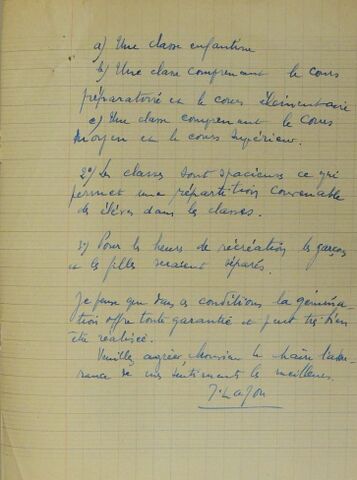 a) Une classe enfantine
b) Une classe comprenant le cours
préparatoire et le cours élémentaire
c) Une classe comprenant le cours
moyen et le cours supérieur.
2°) Les classes sont spacieuses ce qui
permet une répartition convenable
des élèves dans les classes.
3°) Pour les heures de récréation les garçons
et les filles seraient séparés.
Je pense que dans ces conditions la gémina-
tion offre toute garantie et peut très bien
être réalisée.
Veuillez agréer, Monsieur le Maire l'assu-
rance de mes sentiments les meilleurs.